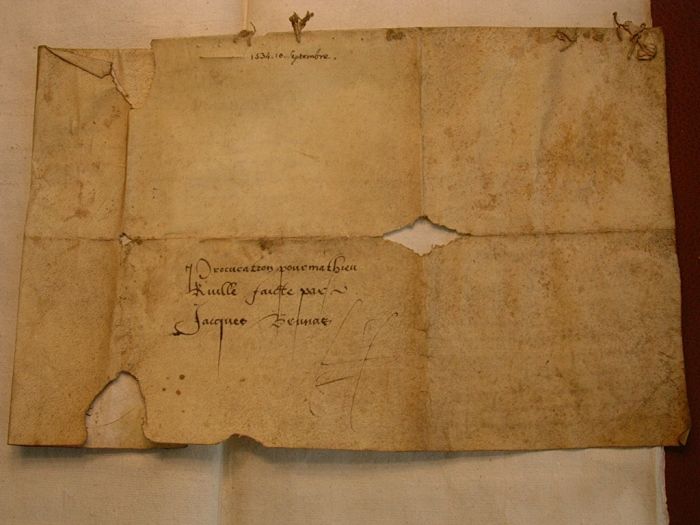 1534. 10. Septembre.
Procuration pour mathieu
Ruille faicte par
Jacques